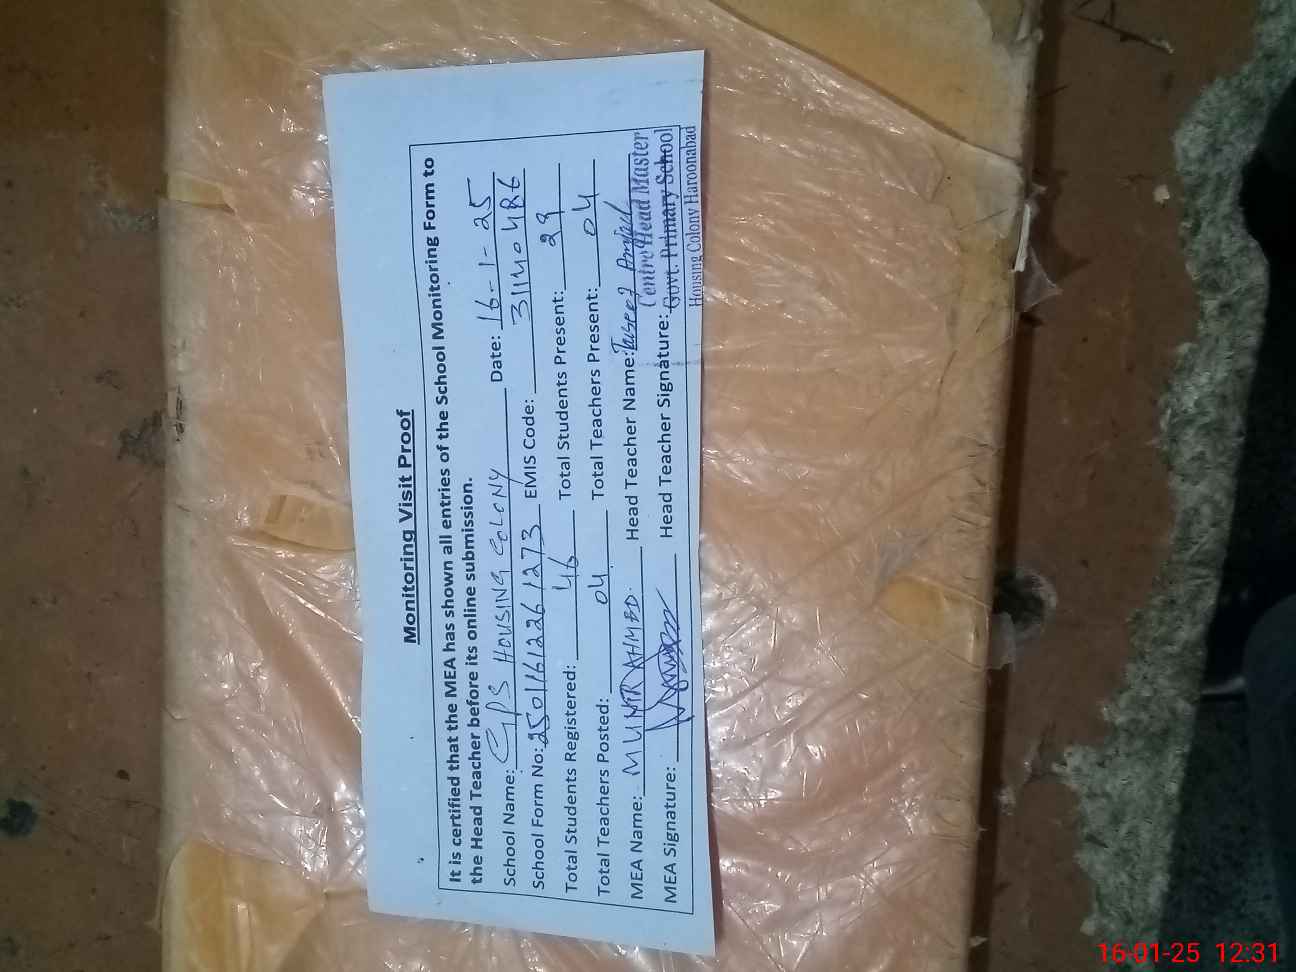 Monitoring Visit Proof
It is certified that the MEA has shown all entries of the School Monitoring Form to
the Head Teacher before its online submission.
School Name: GPS HOUSING COLONY Date: 16-1-25
School Form No: 250116122611273 EMIS Code: 31140486
Total Students Registered: 46 Total Students Present: 29
Total Teachers Posted: 04 Total Teachers Present: 04
MEA Name: MUNIR AHMED. Head Teacher Name:
MEA Signature: Head Teacher Signature:
Centre Head Master
Govt. Primary School
Housing Colony Haroonabad
16-01-25 12:31